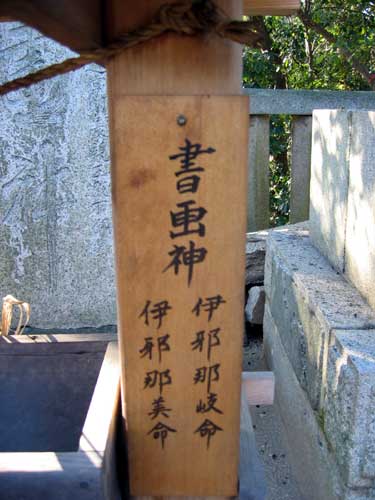 書画神
伊邪那岐命
伊邪那美命